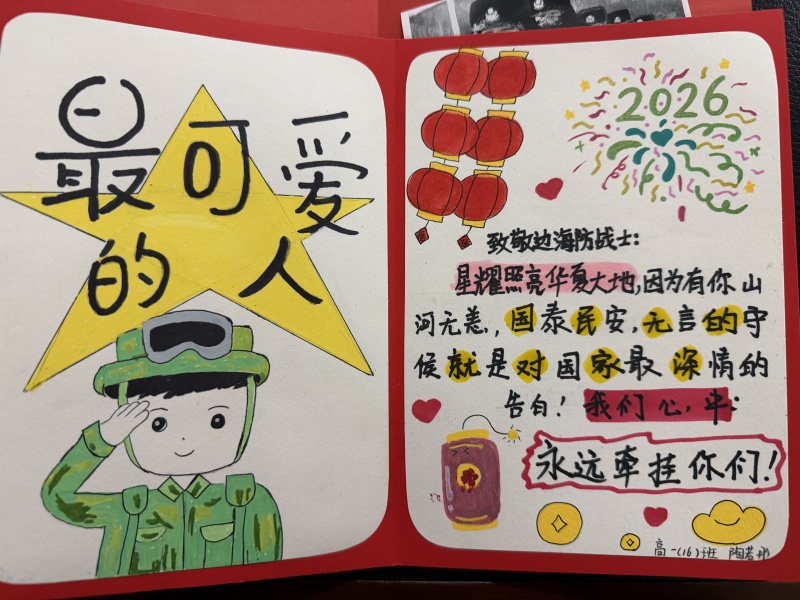 最可爱
的人
2026
致敬边海防战士：
星耀照亮华夏大地，因为有你山
河无恙，国泰民安，无言的守
候就是对国家最深情的
告白！我们心，牵：
永远牵挂你们！
高一(16)班 陶若彤